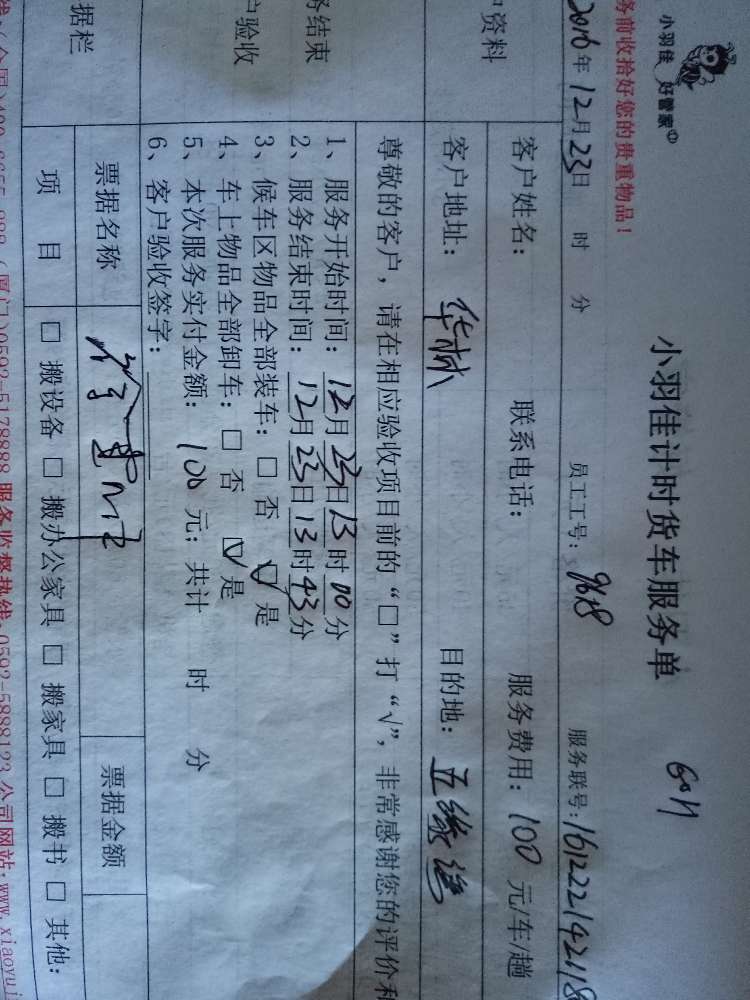 小羽佳 好管家
务前收拾好您的贵重物品!
小羽佳计时货车服务单
6011
2016年12月23日 时 分 员工工号: 9618 服务联号: 161222142118
户资料
客户姓名: 联系电话: 服务费用: 100 元/车/趟
客户地址: 华林 目的地: 五缘
务结束
户验收
尊敬的客户,请在相应验收项目前的“□”打“√”,非常感谢您的评价和
1、服务开始时间: 12月23日13时00分
2、服务结束时间: 12月23日13时43分
3、候车区物品全部装车: □ 否 ☑ 是
4、车上物品全部卸车: □ 否 ☑ 是
5、本次服务实付金额: 100 元; 共计 时 分
6、客户验收签字:
据栏
票据名称 票据金额
项目 □ 搬设备 □ 搬办公家具 □ 搬家具 □ 搬书 □ 其他:
(厦门)0592-5178888 服务监督热线:0592-5888123 公司网站:www.xiaoyuj